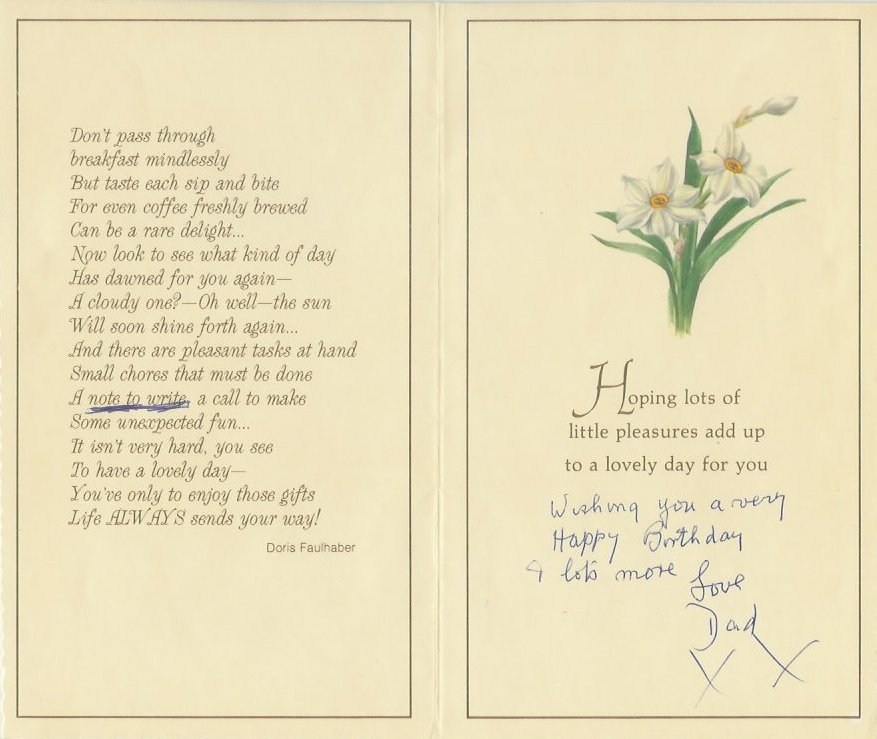 Don't pass through
breakfast mindlessly
But taste each sip and bite
For even coffee freshly brewed
Can be a rare delight...
Now look to see what kind of day
Has dawned for you again—
A cloudy one?—Oh well—the sun
Will soon shine forth again...
And there are pleasant tasks at hand
Small chores that must be done
A note to write, a call to make
Some unexpected fun...
It isn't very hard, you see
To have a lovely day—
You've only to enjoy those gifts
Life ALWAYS sends your way!
Doris Faulhaber
Hoping lots of
little pleasures add up
to a lovely day for you
Wishing you a very
Happy Birthday
& lots more Love
Dad
X X